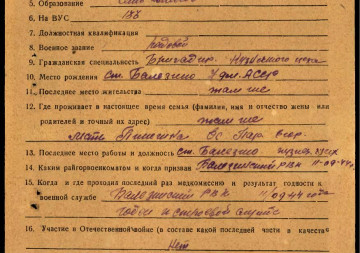 5. Образование
6. На ВУС 133
7. Должностная квалификация
8. Военное звание рядовой
9. Гражданская специальность Бригадир
10. Место рождения ст. Балезино Удм. АССР
11. Последнее место жительства там же
12. Где проживает в настоящее время семья (фамилия, имя и отчество жены или
родителей и точный их адрес) там же
мать
13. Последнее место работы и должность ст. Балезино
14. Каким райгорвоенкоматом и когда призван Балезинский РВК 11-09-44 г.
15. Когда и где проходил последний раз медкомиссию и результат годности к
военной службе Балезинский РВК 11/09 44 года
годен к строевой службе
16. Участие в Отечественной войне (в составе какой последней части и в качестве
Нет